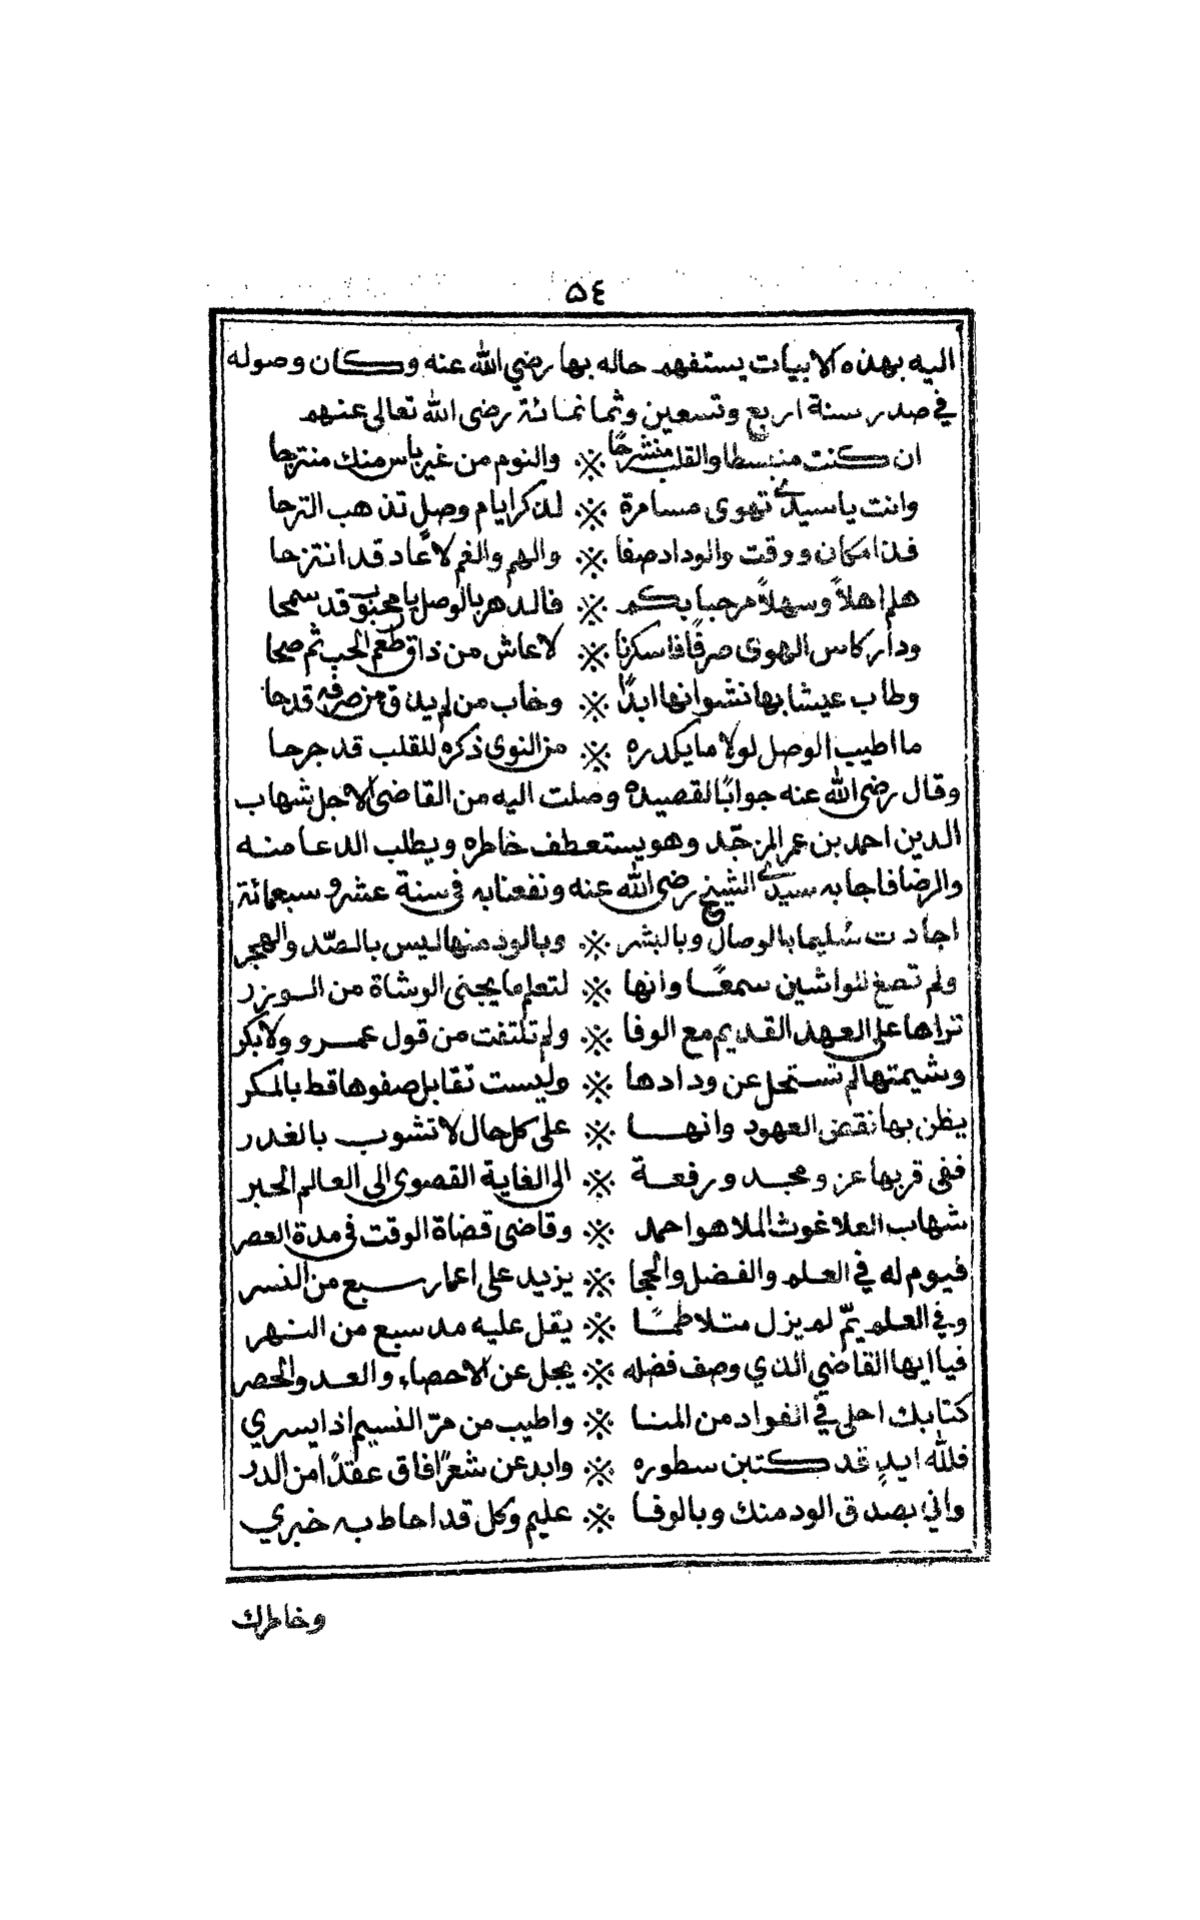 ٥٤
اليه بهذه الابيات يستفهم حاله بها رضي الله عنه وكان وصوله
في صدر سنة اربع وتسعين وثمانمائة رضى الله تعالى عنهم
ان كنت منبسطا والقلب منشرحًا ※ والنوم من غير باس منك منترحا
وانت يا سيدي تهوى مسامرة ※ لذكر ايام وصل تذهب الترحا
فذا مكان ووقت والوداد صفا ※ والهم والغم لا عاد قد انتزحا
هلم اهلاً وسهلاً مرحبا بكم ※ فالدهر بالوصل يا محبوب قد سمحا
ودار كاس الهوى صرفًا فاسكرنا ※ لا عاش من ذاق طعم الحب ثم صحا
وطاب عيشا بها نشوانها ابدًا ※ وخاب من لم يذق من صرفه قدحا
ما اطيب الوصل لولا ما يكدره ※ من النوى ذكره للقلب قد جرحا
وقال رضى الله عنه جوابًا لقصيده وصلت اليه من القاضي الاجل شهاب
الدين احمد بن عمر المزجّد وهو يستعطف خاطره ويطلب الدعا منه
والرضا فاجابه سيدي الشيخ رضى الله عنه ونفعنا به في سنة عشر و سبعمائة
اجادت سُليما بالوصال وبالبشر ※ وبالود منها ليس بالصّد والهجر
ولم تصغ للواشين سمعًا وانها ※ لتعلم ما يجنى الوشاة من الوزر
تراها على العهد القديم مع الوفا ※ ولم تلتفت من قول عمرو ولا بكر
وشيمتها لم تستحل عن ودادها ※ وليست تقابل صفوها قط بالمكر
يظن بها نقض العهود وانها ※ على كل حال لا تشوب بالغدر
ففى قربها عز و مجد ورفعة ※ الى الغاية القصوى الى العالم الحبر
شهاب العلا غوث الملا هو احمد ※ وقاضى قضاة الوقت في مدة العصر
فيوم له في العلم والفضل والحجا ※ يزيد على اعمار سبع من النسر
وفي العلم يمّ لم يزل متلاطمًا ※ يقل عليه مد سبع من النهر
فيا ايها القاضي الذي وصف فضله ※ يجل عن الاحصاء والعد والحصر
كتابك احلى في الفواد من المنا ※ واطيب من مرّ النسيم اذا يسري
فلله ايدٍ قد كتبن سطوره ※ وابدعن شعرًا فاق عقدًا من الدر
واني بصدق الود منك وبالوفا ※ عليم وكل قد احاط به خبري
وخاطرك